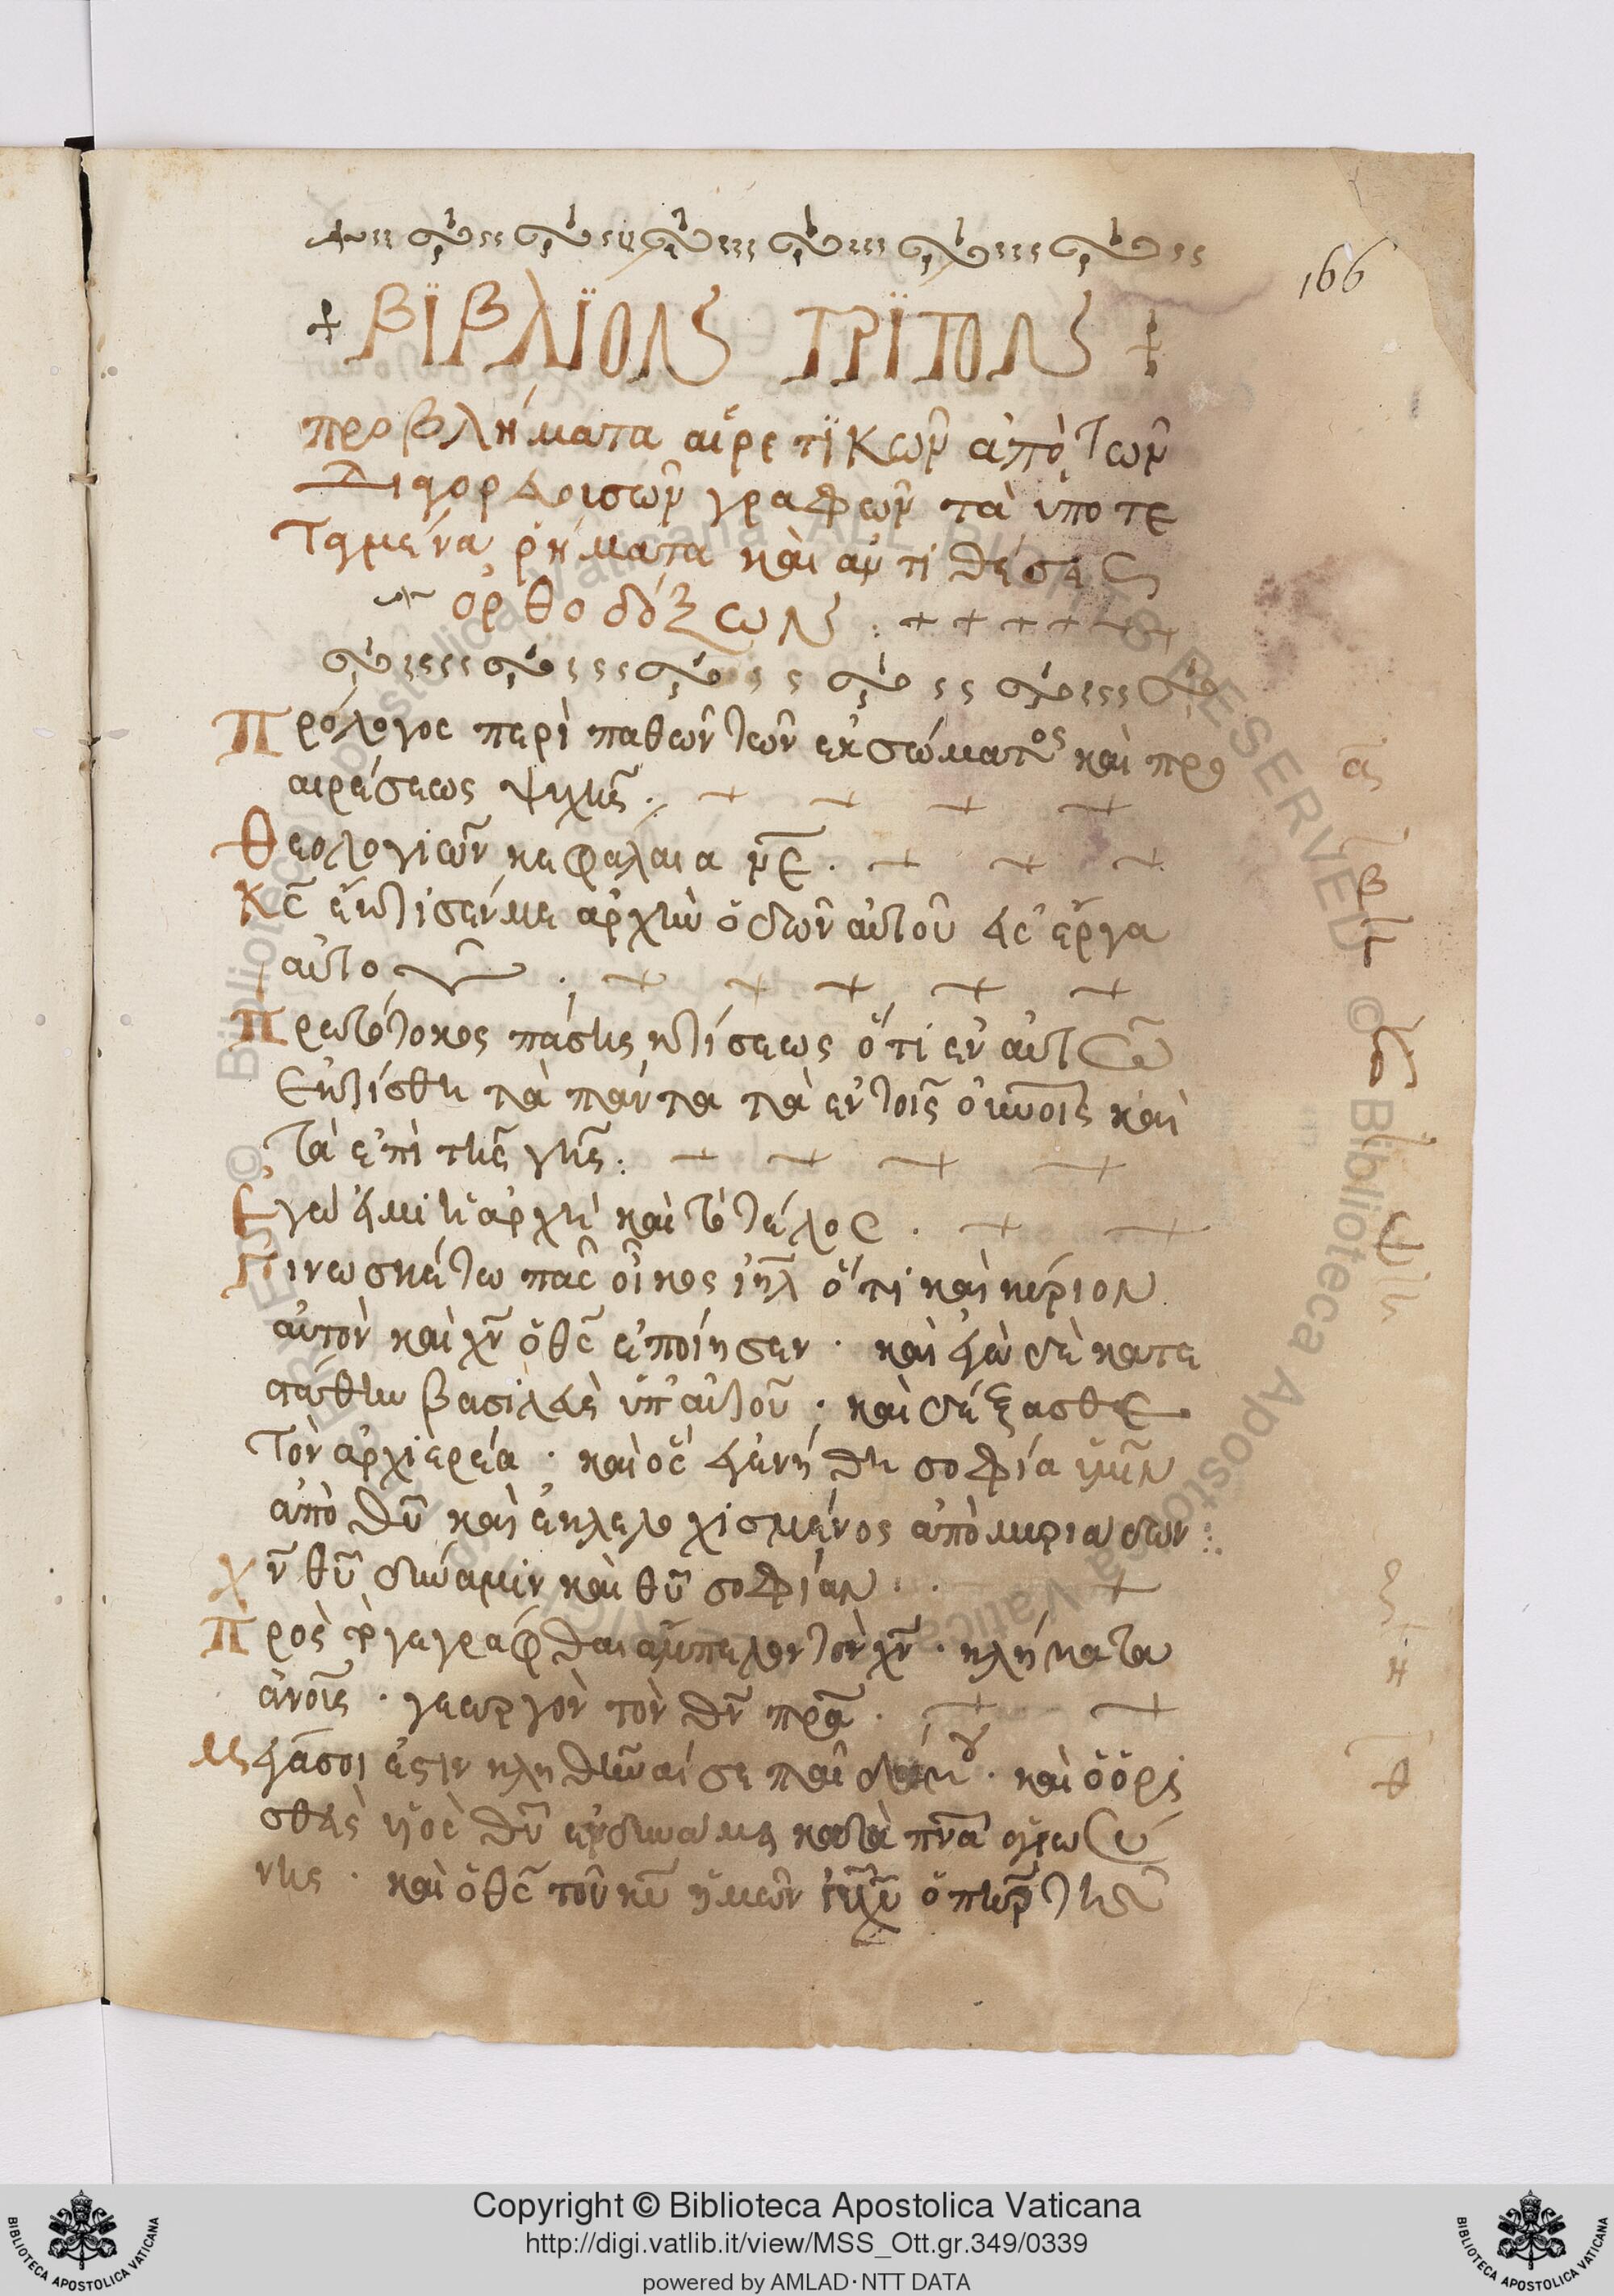 166
+ ΒΪΒΛΪΟΝ ΤΡΪΤΟΝ +
προβλήματα αἱρετϊκῶν ἀπὸ τῶν
τα ὑποτε
ταγμένα ῥήματα καὶ ἀντιθέσεις
ὀρθοδόξων : + + + + + +
Πρόλογος περὶ παθῶν τῶν ἐκ σώματος καὶ προ
αιρέσεως ψυχῆς . + + + +
ᾱ
Θεολογιῶν κεφάλαια + + +
β̄
Κς̄ ἔκτισέν με ἀρχὴν ὁδῶν αὐτοῦ εἰς ἔργα
γ̄
αὐτοῦ . + + + + +
Πρωτότοκος πάσης κτίσεως ὅτι ἐν αὐτῶ
δ̄
ἐκτίσθη τὰ πάντα τὰ ἐν τοῖς οὐνοῖς καὶ
τὰ ἐπὶ τῆς γῆς : + + + +
Ἐγώ εἰμι ἡ ἀρχὴ καὶ τὸ τέλος . + +
ε̄
Γινωσκέτω πᾶς οἶκος ιηλ̄ ὅτι καὶ κύριον
αὐτὸν καὶ χν̄ ὁ θς̄ ἐποίησεν · καὶ ἐγὼ δὲ κατε
στάθην βασιλεὺς ὑπ' αὐτοῦ · καὶ δέξασθε
τὸν ἀρχιερέα · καὶ ὃς ἐγενήθη σοφία ἡμῖν
ἀπὸ θῡ καὶ ἐκλελοχισμένος ἀπὸ μυριάδων :
Χν̄ θῡ δύναμιν καὶ θῡ σοφίαν . +
ζ
Πρὸς τὸ γεγράφθαι ἄμπελον τὸν χν̄ · κλήματα
η
ἀνοῖς · γεωργὸν τὸν θν̄ πρᾱ . + +
Μέγα σοί ἐστιν κληθῆναί σε παῖδά μου · καὶ ὁ ὁρι
θ
σθεὶς υἱὸς θῡ ἐν δυνάμει κατὰ πνᾱ ἁγιωσύ
νης · καὶ ὁ θς̄ τοῦ κῡ ἡμῶν ιῡ χῡ ὁ πηρ̄ τῆς
Copyright © Biblioteca Apostolica Vaticana
http://digi.vatlib.it/view/MSS_Ott.gr.349/0339
powered by AMLAD·NTT DATA
BIBLIOTECA APOSTOLICA VATICANA
BIBLIOTECA APOSTOLICA VATICANA